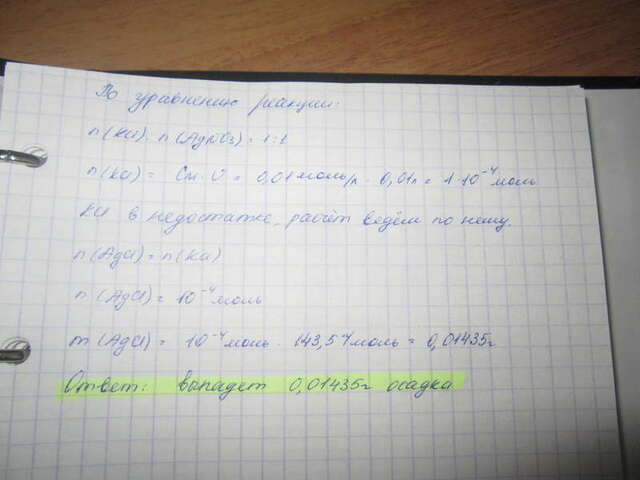 По уравнению реакции:
n(KCl) : n(AgNO3) = 1:1
n(KCl) = См · V = 0,01 моль/л · 0,01л = 1·10⁻⁴ моль
KCl в недостатке, расчёт ведём по нему.
n(AgCl) = n(KCl)
n(AgCl) = 10⁻⁴ моль
m(AgCl) = 10⁻⁴ моль · 143,5 г/моль = 0,01435г
Ответ: выпадет 0,01435г осадка